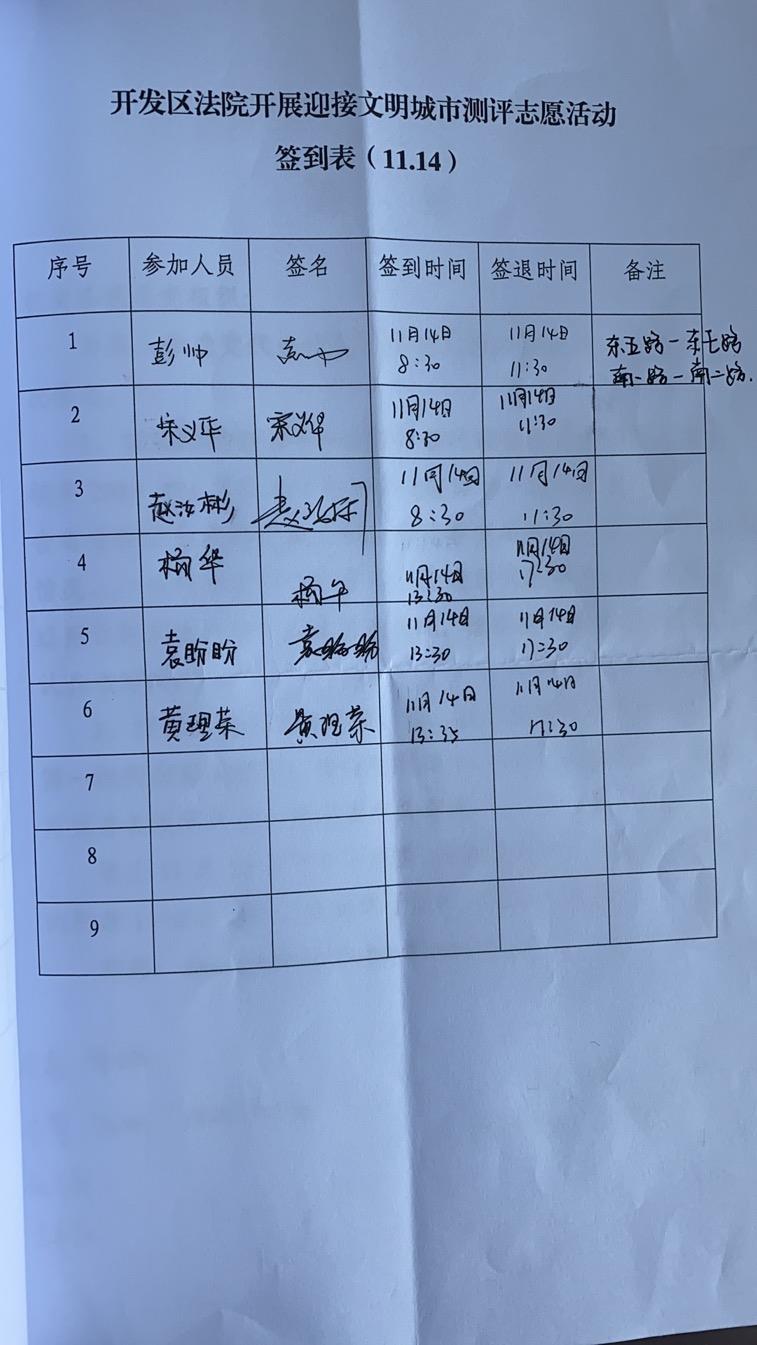 开发区法院开展迎接文明城市测评志愿活动
签到表（11.14）
序号 参加人员 签名 签到时间 签退时间 备注
1 彭帅 11月14日 8:30 11月14日 11:30 东五路-东七路 南一路-南二路.
2 宋义华 宋义华 11月14日 8:30 11月14日 11:30
3 赵汝彬 11月14日 8:30 11月14日 11:30
4 杨华 杨华 11月14日 13:30 11月14日 17:30
5 袁盼盼 袁盼盼 11月14日 13:30 11月14日 17:30
6 黄理荣 黄理荣 11月14日 13:35 11月14日 17:30
7
8
9